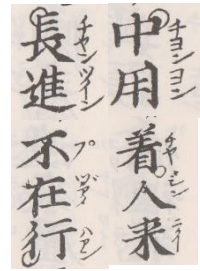 中用
チヨンヨン
着人来
チヤジンライ
長進
チヤンツイン
不在行
プヅァイハアン